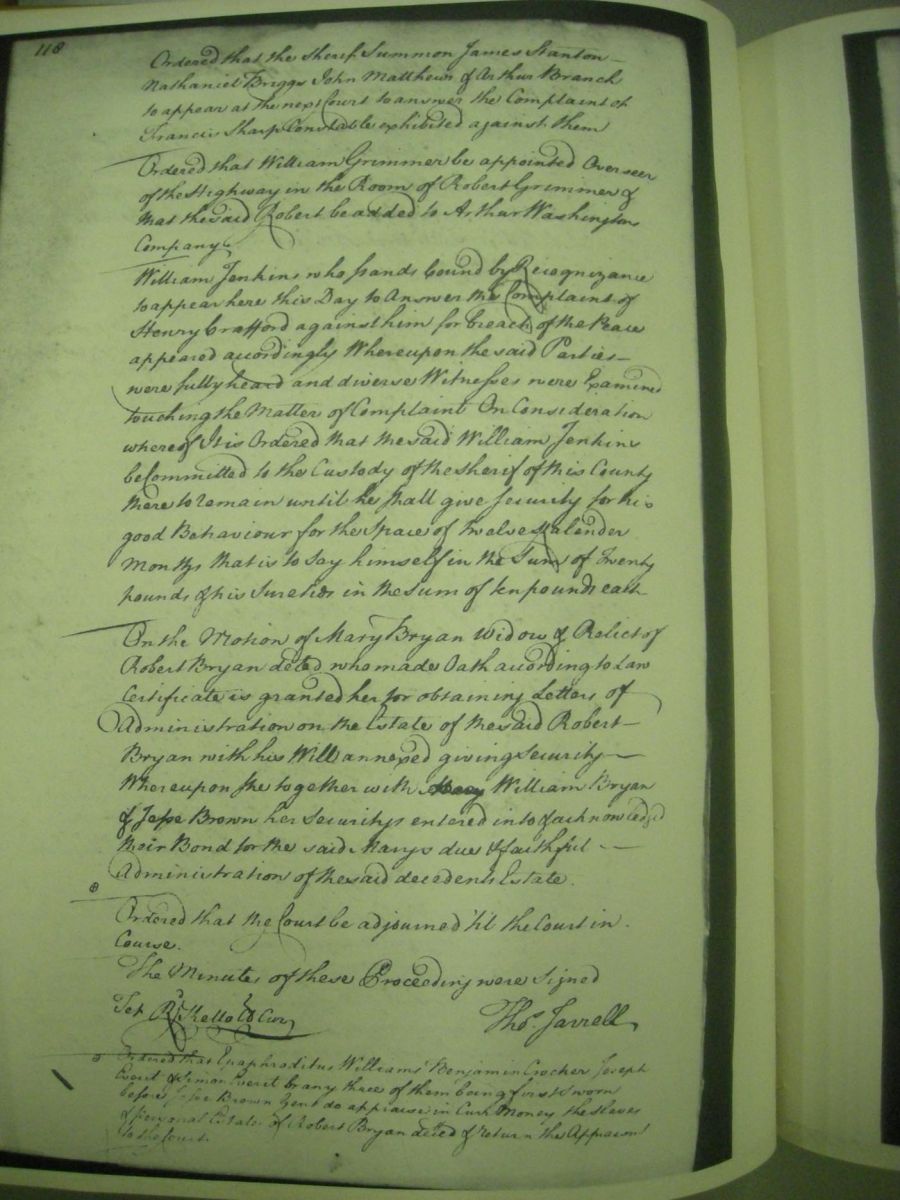 118
Ordered that the Sherif Summon James Stanton
Nathaniel Briggs John Matthews & Arthur Branch
to appear at the next Court to answer the Complaint of
Francis Sharp Constable exhibited against them
Ordered that William Grimmer be appointed Overseer
of the Highway in the Room of Robert Grimmer &
that the said Robert be added to Arthur Washingtons
Company.
William Jenkins who stands bound by Recognizance
to appear here this Day to Answer the Complaint of
Henry Crafford against him for breach of the Peace
appeared accordingly Whereupon the said Parties
were fully heard and diverse Witnesses were Examined
touching the Matter of Complaint On Consideration
whereof It is Ordered that the said William Jenkins
be Committed to the Custody of the Sherif of this County
there to remain until he shall give Security for his
good Behaviour for the Space of twelve Kalender
Months that is to Say himself in the Sum of Twenty
pounds & his Sureties in the Sum of ten pounds each
On the Motion of Mary Bryan Widow & Relict of
Robert Bryan deced who made Oath according to Law
Certificate is granted her for obtaining Letters of
Administration on the Estate of the said Robert
Bryan with his Will annexed giving Security
Whereupon She together with William Bryan
& Jesse Brown her Securitys entered into & acknowledged
their Bond for the said Marys due & faithful
Administration of the said decedents Estate.
Ordered that the Court be adjourned 'til the Court in
Course.
The Minutes of these Proceeding were Signed
Rd. Kello Cl Cur
Thos. Jarrell
Ordered that Epaphroditus Williams Benjamin Crocher Joseph
Everit & Simon Everit or any three of them being first Sworn
before Jesse Brown Gent do appraise in Curt Money the slaves
& personal Estate of Robert Bryan deced & return the Appraismt
to the Court.